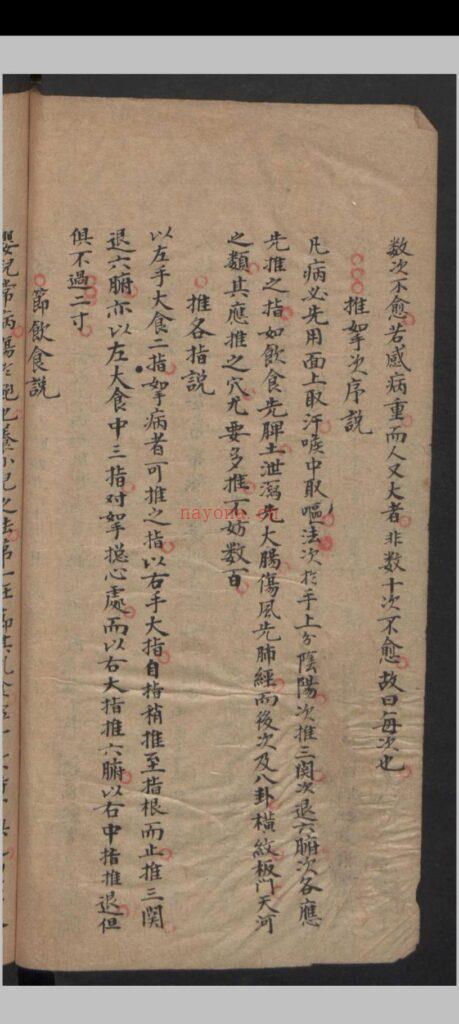 数次不愈若感病重而人又大者非数十次不愈故曰每次也
推拏次序說
凡病必先用面上取汗喉中取嘔法次於手上分陰陽次推三関次退六腑次各應
先推之指如飲食先脾土泄瀉先大腸傷風先肺經而後次及八卦橫紋板門天河
之類其應推之穴尤要多推不妨数百
推各指説
以左手大食二指拏病者可推之指以右手大指自指稍推至指根而止推三関
退六腑亦以左大食中三指对拏捴心處而以右大指推六腑以右中指推退但
俱不過二寸
節飲食説
嬰兒常病傷於飽也養小兒之法第一在節其乳食
nayona.cn